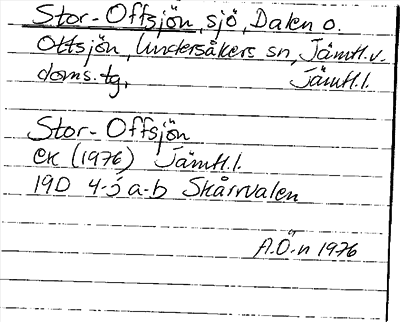 Stor-Offsjön, sjö, Dalen o.
Ottsjön, Undersåkers sn, Jämtl.v.
doms.tg, Jämtl.l.
Stor-Offsjön
ek (1976) Jämtl.l.
19D 4-5 a-b Skårvalen
A.Ö-n 1976